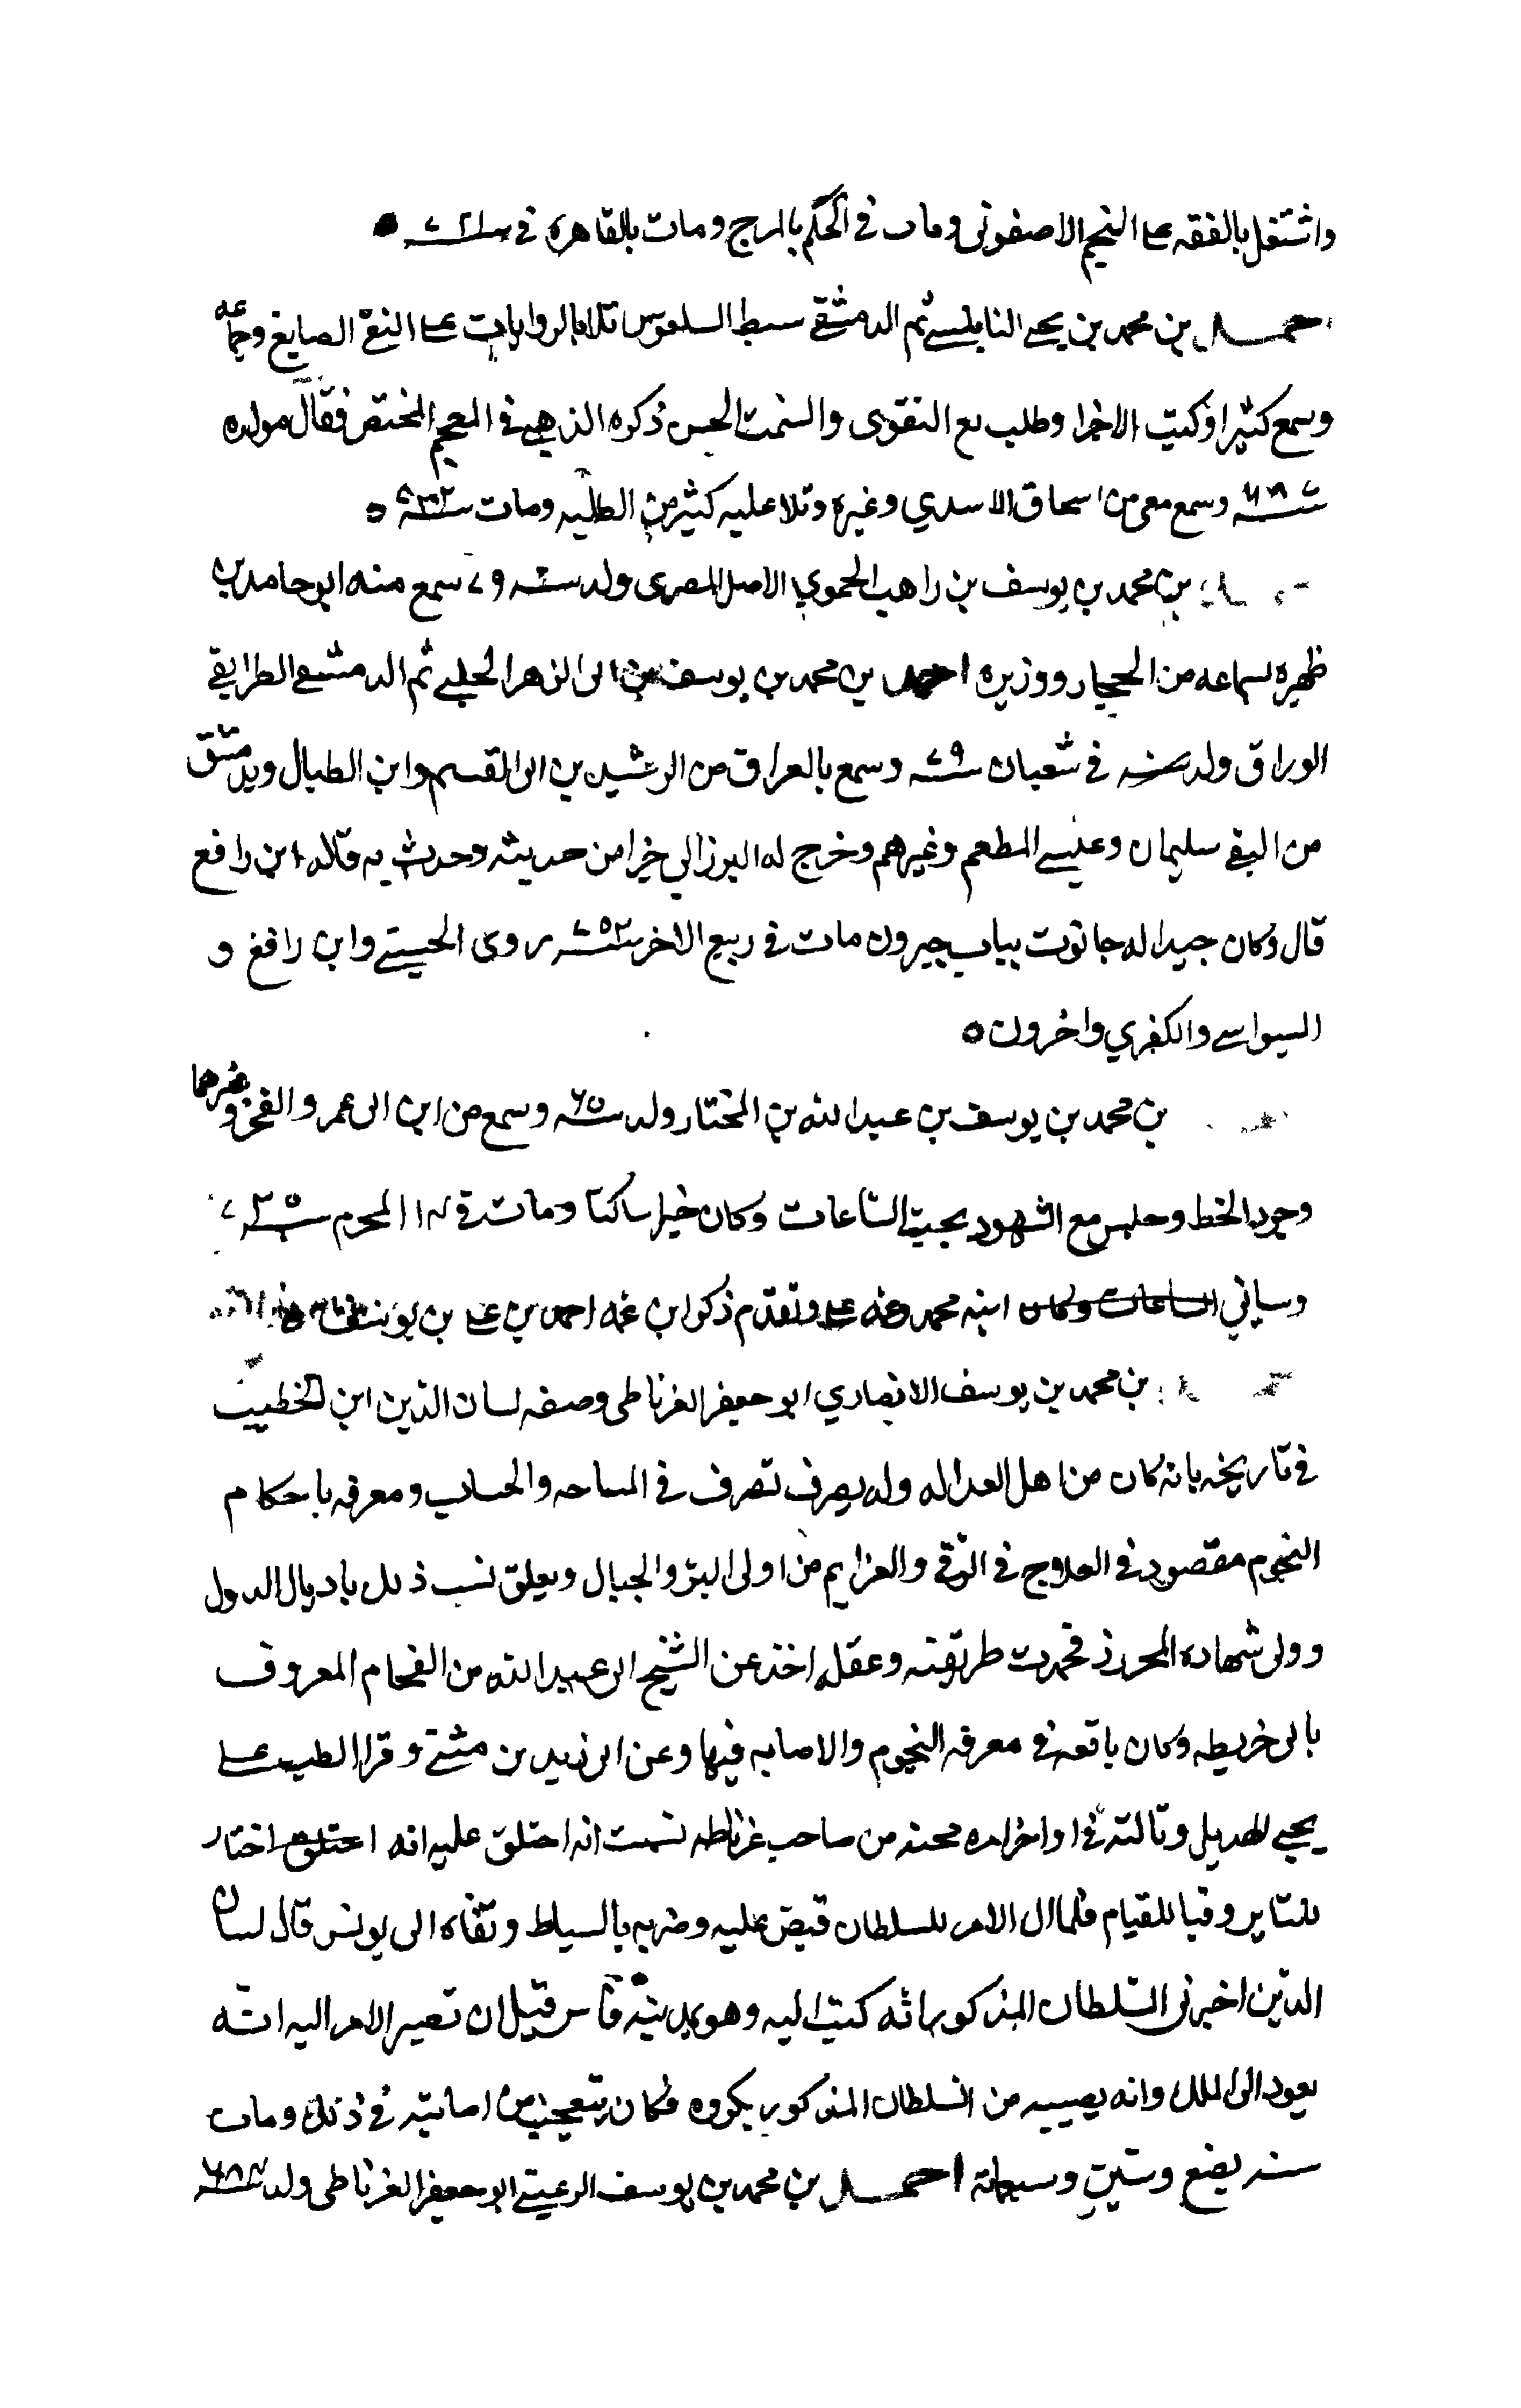 واشتغل بالفقه على النجم الاصفوني وناب في الحكم بالمرج ومات بالقاهرة في سنة ٧٢١
احمد بن محمد بن يحيى النابلسي ثم الدمشقي سبط السلعوس تلا بالروايات على التقي الصايغ وجماعه
وسمع كثيرا وكتب الاجزا وطلب مع التقوى والسمت الحسن ذكره الذهبي في المعجم المختص فقال مولده
سنة ٦٨٧ وسمع معي من اسحاق الاسدي وغيره وتلا عليه كثير من الطلبه ومات سنة ٧٣٢
بن محمد بن يوسف بن راهب الحموي الاصل المصرى ولد سنة سمع منه ابو حامد بن
ظهيره بسماعه من الحجار ووزيره احمد بن محمد بن يوسف بن ابى الزهر الحلبي ثم الدمشقي الطرايقي
الوراق ولد في شعبان سنة ٦٧٩ وسمع بالعراق من الرشيد بن ابى القسم وابن الطبال وبدمشق
من التقي سليمان وعيسى المطعم وغيرهم وخرج له البرزالي جزا من حديثه وحدث به قاله ابن رافع
قال وكان جيدا له حانوت بباب جيرون مات في ربيع الاخر سنة ٧٥٢ روى الحسيني وابن رافع و
السيواسي والكفري واخرون
بن محمد بن يوسف بن عبد الله بن المختار ولد سنة ٦٥ وسمع من ابن ابى عمر والفخر وغيرهما
وجود الخط وجلس مع الشهود بجيب الساعات وكان خيرا ساكنا ومات في ١١ المحرم سنة ٧٣٥
وسياتي الساعات وكان ابنه محمد وعمه على وتقدم ذكر ابن عمه احمد بن على بن يوسف
بن محمد بن يوسف الانصاري ابو جعفر الغرناطى وصفه لسان الدين ابن الخطيب
في تاريخه بانه كان من اهل العداله وله بصرف تصرف في المساحه والحساب ومعرفه باحكام
النجوم مقصود في العلاج في الرقي والعزايم من اولى البر والجبال وتعلق بسبب ذلك باذيال الدول
وولى شهاده المحرز فحمدت طريقته وعقله اخذ عن الشيخ ابى عبد الله من الفحام المعروف
بابى خريطه وكان باقعه في معرفه النجوم والاصابه فيها وعن ابى زيد بن مثنى وقرا الطب على
يحيى الهديل ونالته في اواخر امره محنه من صاحب غرناطه نسبت انه اختلق عليه انه اختلق اختار
للثاير وقتا للقيام فلما ال الامر للسلطان قبض عليه وضربه بالسياط ونفاه الى تونس قال لسان
الدين اخبرنى السلطان المذكور انه كتب اليه وهو بمدينة فاس قبل ان تصير الامر اليه انه
يعود الى الملك وانه يصيبه من السلطان المذكور مكروه فكان يتعجب من اصابته في ذلك ومات
سنه بضع وستين وسبعمائة احمد بن محمد بن يوسف الرعيني ابو جعفر الغرناطى ولد